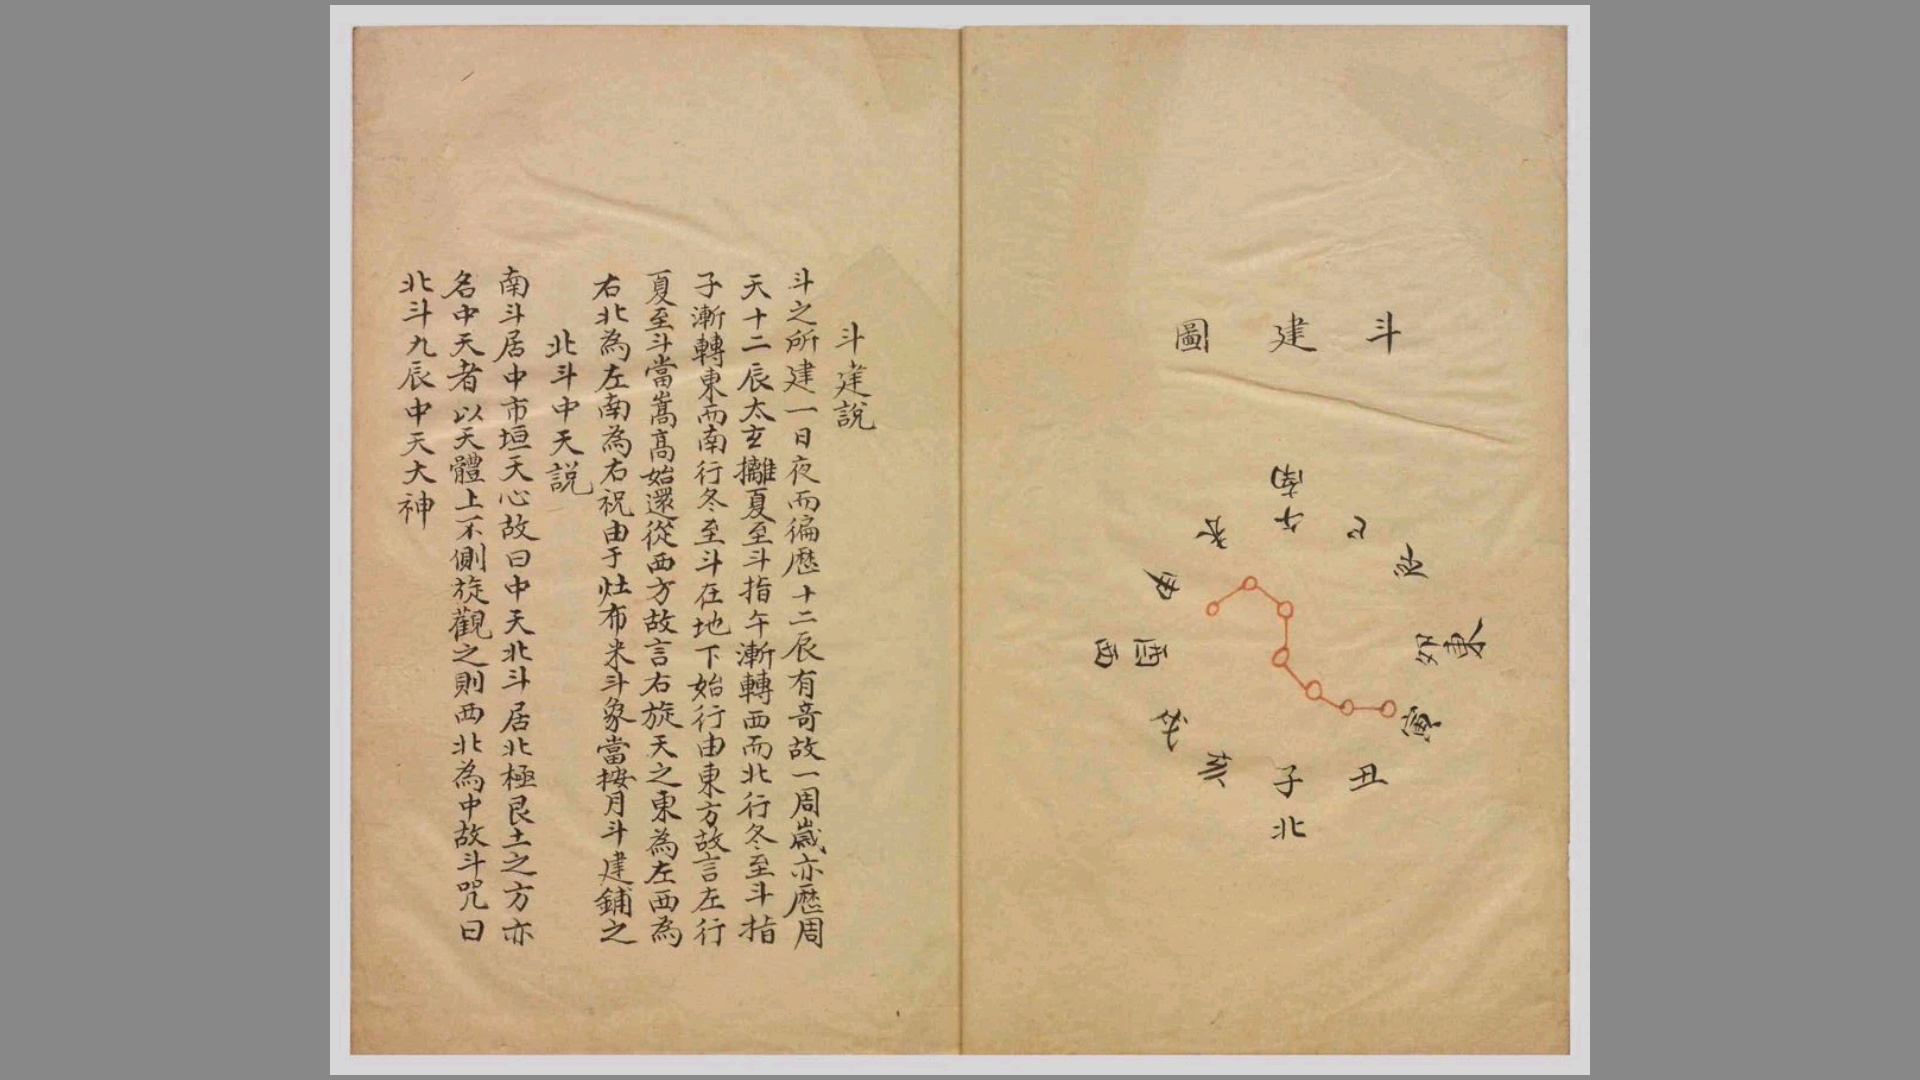 斗建圖
南
午
巳
辰
卯
東
寅
丑
子
北
亥
戌
酉
西
申
未
斗建說
斗之所建一日夜而徧歷十二辰有竒故一周歲亦歷周
天十二辰太玄攡夏至斗指午漸轉西而北行冬至斗指
子漸轉東而南行冬至斗在地下始行由東方故言左行
夏至斗當嵩髙始還從西方故言右旋天之東為左西為
右北為左南為右祝由于灶布米斗象當按月斗建鋪之
北斗中天說
南斗居中市垣天心故曰中天北斗居北極艮土之方亦
名中天者以天體上不側旋觀之則西北為中故斗咒曰
北斗九辰中天大神